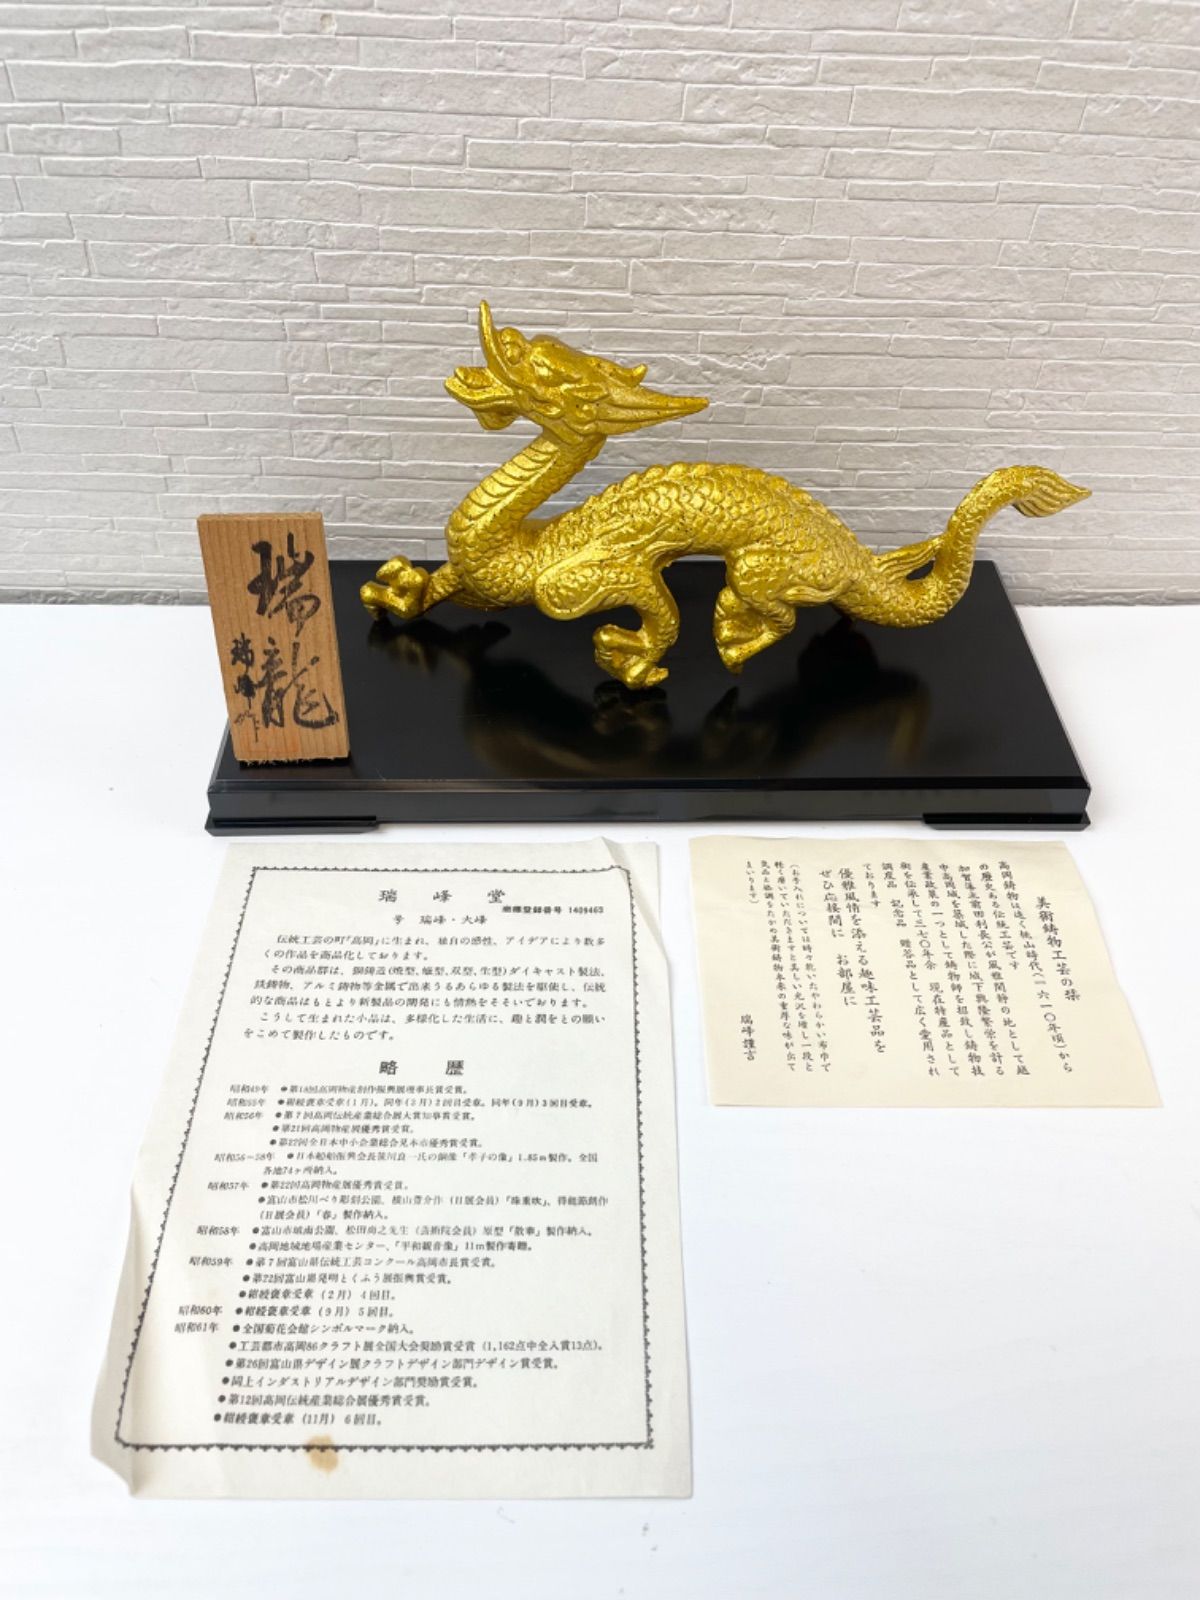 瑞龍
瑞峰作
瑞峰堂
商標登録番号 1409463
号 瑞峰・大峰
伝統工芸の町「高岡」に生まれ、独自の感性、アイデアにより数多
くの作品を商品化しております。
その商品群は、銅鋳造(焼型、蝋型、双型、生型)ダイキャスト製法、
鉄鋳物、アルミ鋳物等金属で出来うるあらゆる製法を駆使し、伝統
的な商品はもとより新製品の開発にも情熱をそそいでおります。
こうして生まれた小品は、多様化した生活に、趣と潤をとの願い
をこめて製作したものです。
略歴
昭和49年 ●第18回高岡物産創作振興展理事長賞受賞。
昭和55年 ●紺綬褒章受章(1月)。同年(3月)2回目受章。同年(9月)3回目受章。
昭和56年 ●第7回高岡伝統産業総合展大賞知事賞受賞。
●第21回高岡物産展優秀賞受賞。
●第22回全日本中小企業総合見本市優秀賞受賞。
昭和56-58年 ●日本船舶振興会長笹川良一氏の銅像「孝子の像」1.85m製作。全国
各地74ヶ所納入。
昭和57年 ●第22回高岡物産展優秀賞受賞。
●富山市松川べり彫刻公園、横山豊介作(日展会員)「珠重吹」、得能節朗作
(日展会員)「春」製作納入。
昭和58年 ●富山市城南公園、松田尚之先生(芸術院会員)原型「散華」製作納入。
●高岡地域地場産業センター、「平和観音像」11m製作寄贈。
昭和59年 ●第7回富山県伝統工芸コンクール高岡市長賞受賞。
●第22回富山県発明とくふう展振興賞受賞。
●紺綬褒章受章(2月)4回目。
昭和60年 ●紺綬褒章受章(9月)5回目。
昭和61年 ●全国菊花会館シンボルマーク納入。
●工芸都市高岡86クラフト展全国大会奨励賞受賞(1,162点中全入賞13点)。
●第26回富山県デザイン展クラフトデザイン部門デザイン賞受賞。
●同上インダストリアルデザイン部門奨励賞受賞。
●第12回高岡伝統産業総合展優秀賞受賞。
●紺綬褒章受章(11月)6回目。
美術鋳物工芸の栞
高岡鋳物は遠く桃山時代(一六一〇年頃)から
の歴史ある伝統工芸です
加賀藩主前田利長公が風雅閑静の地として越
中高岡城を築城した際に城下興隆繁栄を計る
産業政策の一つとして鋳物師を招致し鋳物技
術を伝承して三七〇年余 現在特産品として
調度品 記念品 贈答品として広く愛用され
ております
優雅風情を添える趣味工芸品を
ぜひ応接間に お部屋に
(お手入れについては時々乾いたやわらかい布巾で
軽く磨いていただきますと美しい光沢を増し一段と
気品と格調をたかめ美術鋳物本来の重厚な味が出て
まいります)
瑞峰謹言